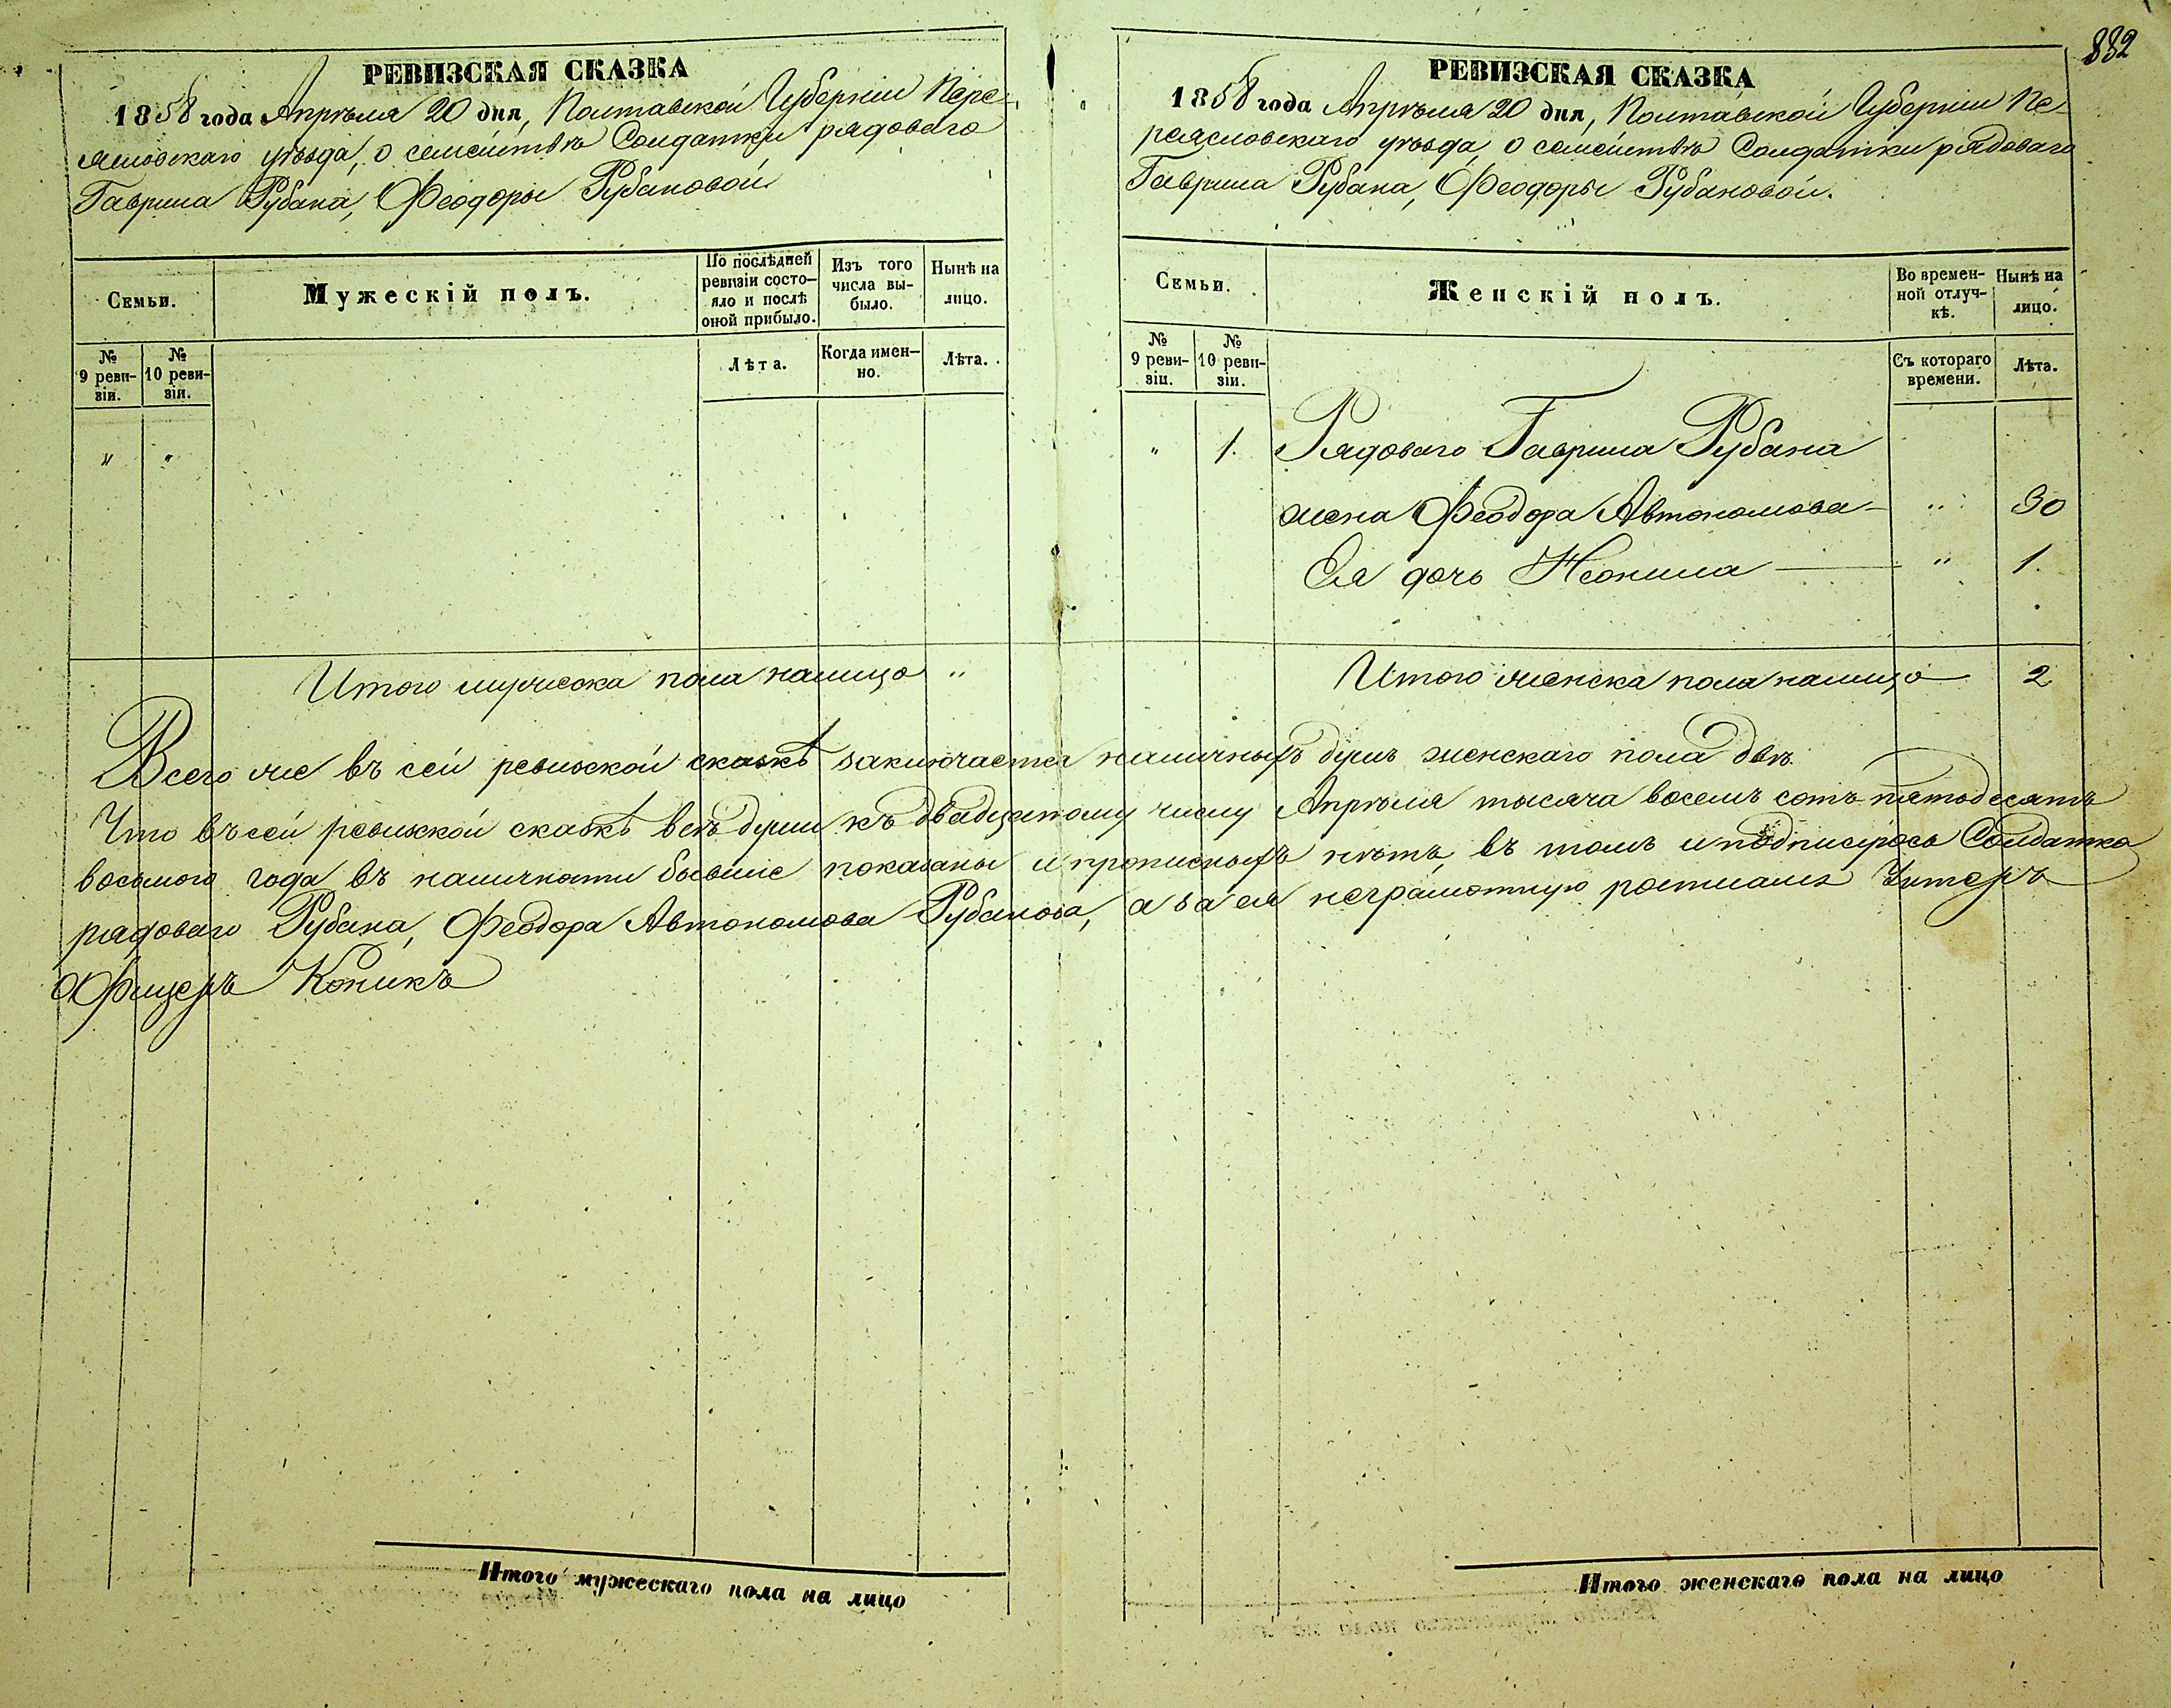 882
РЕВИЗСКАЯ СКАЗКА
1858 года Апрѣля 20 дня, Полтавской Губерніи Пере-
яловскаго уѣзда, о семействѣ Солдатки рядоваго
Гаврила Рубана, Феодоры Рубановой
Семьи.
Мужескій полъ.
По послѣдней
ревизіи состо-
яло и послѣ
оной прибыло.
Изъ того
числа вы-
было.
Нынѣ на
лицо.
№
9 реви-
зіи.
№
10 реви-
зіи.
Лѣта.
Когда имен-
но.
Лѣта.
" "
Итого мужеска пола налицо "
РЕВИЗСКАЯ СКАЗКА
1858 года Апрѣля 20 дня, Полтавской Губерніи Пе-
реясловскаго уѣзда, о семействѣ Солдатки рядоваго
Гаврила Рубана, Феодоры Рубановой.
Семьи.
Женскій полъ.
Во времен-
ной отлуч-
кѣ.
Нынѣ на
лицо.
№
9 реви-
зіи.
№
10 реви-
зіи.
Съ котораго
времени.
Лѣта.
" 1. Рядоваго Гаврила Рубана
жена Феодора Автономова " 30
Ея дочь Неонила — " 1.
Итого женска пола налицо 2
Всего же въ сей ревизской сказкѣ заключается наличныхъ душъ женскаго пола двѣ.
Что въ сей ревизской сказкѣ всѣ души къ двадцатому числу Апрѣля тысяча восемь сотъ пятьдесятъ
восьмого года въ наличности бывшіе показаны и прописныхъ нѣтъ, въ томъ и подписуюсь Солдатка
рядоваго Рубана, Феодора Автономова Рубанова, а за ея неграмотную росписался Унтеръ
Офицеръ Коникъ
Итого мужескаго пола на лицо
Итого женскаго пола на лицо